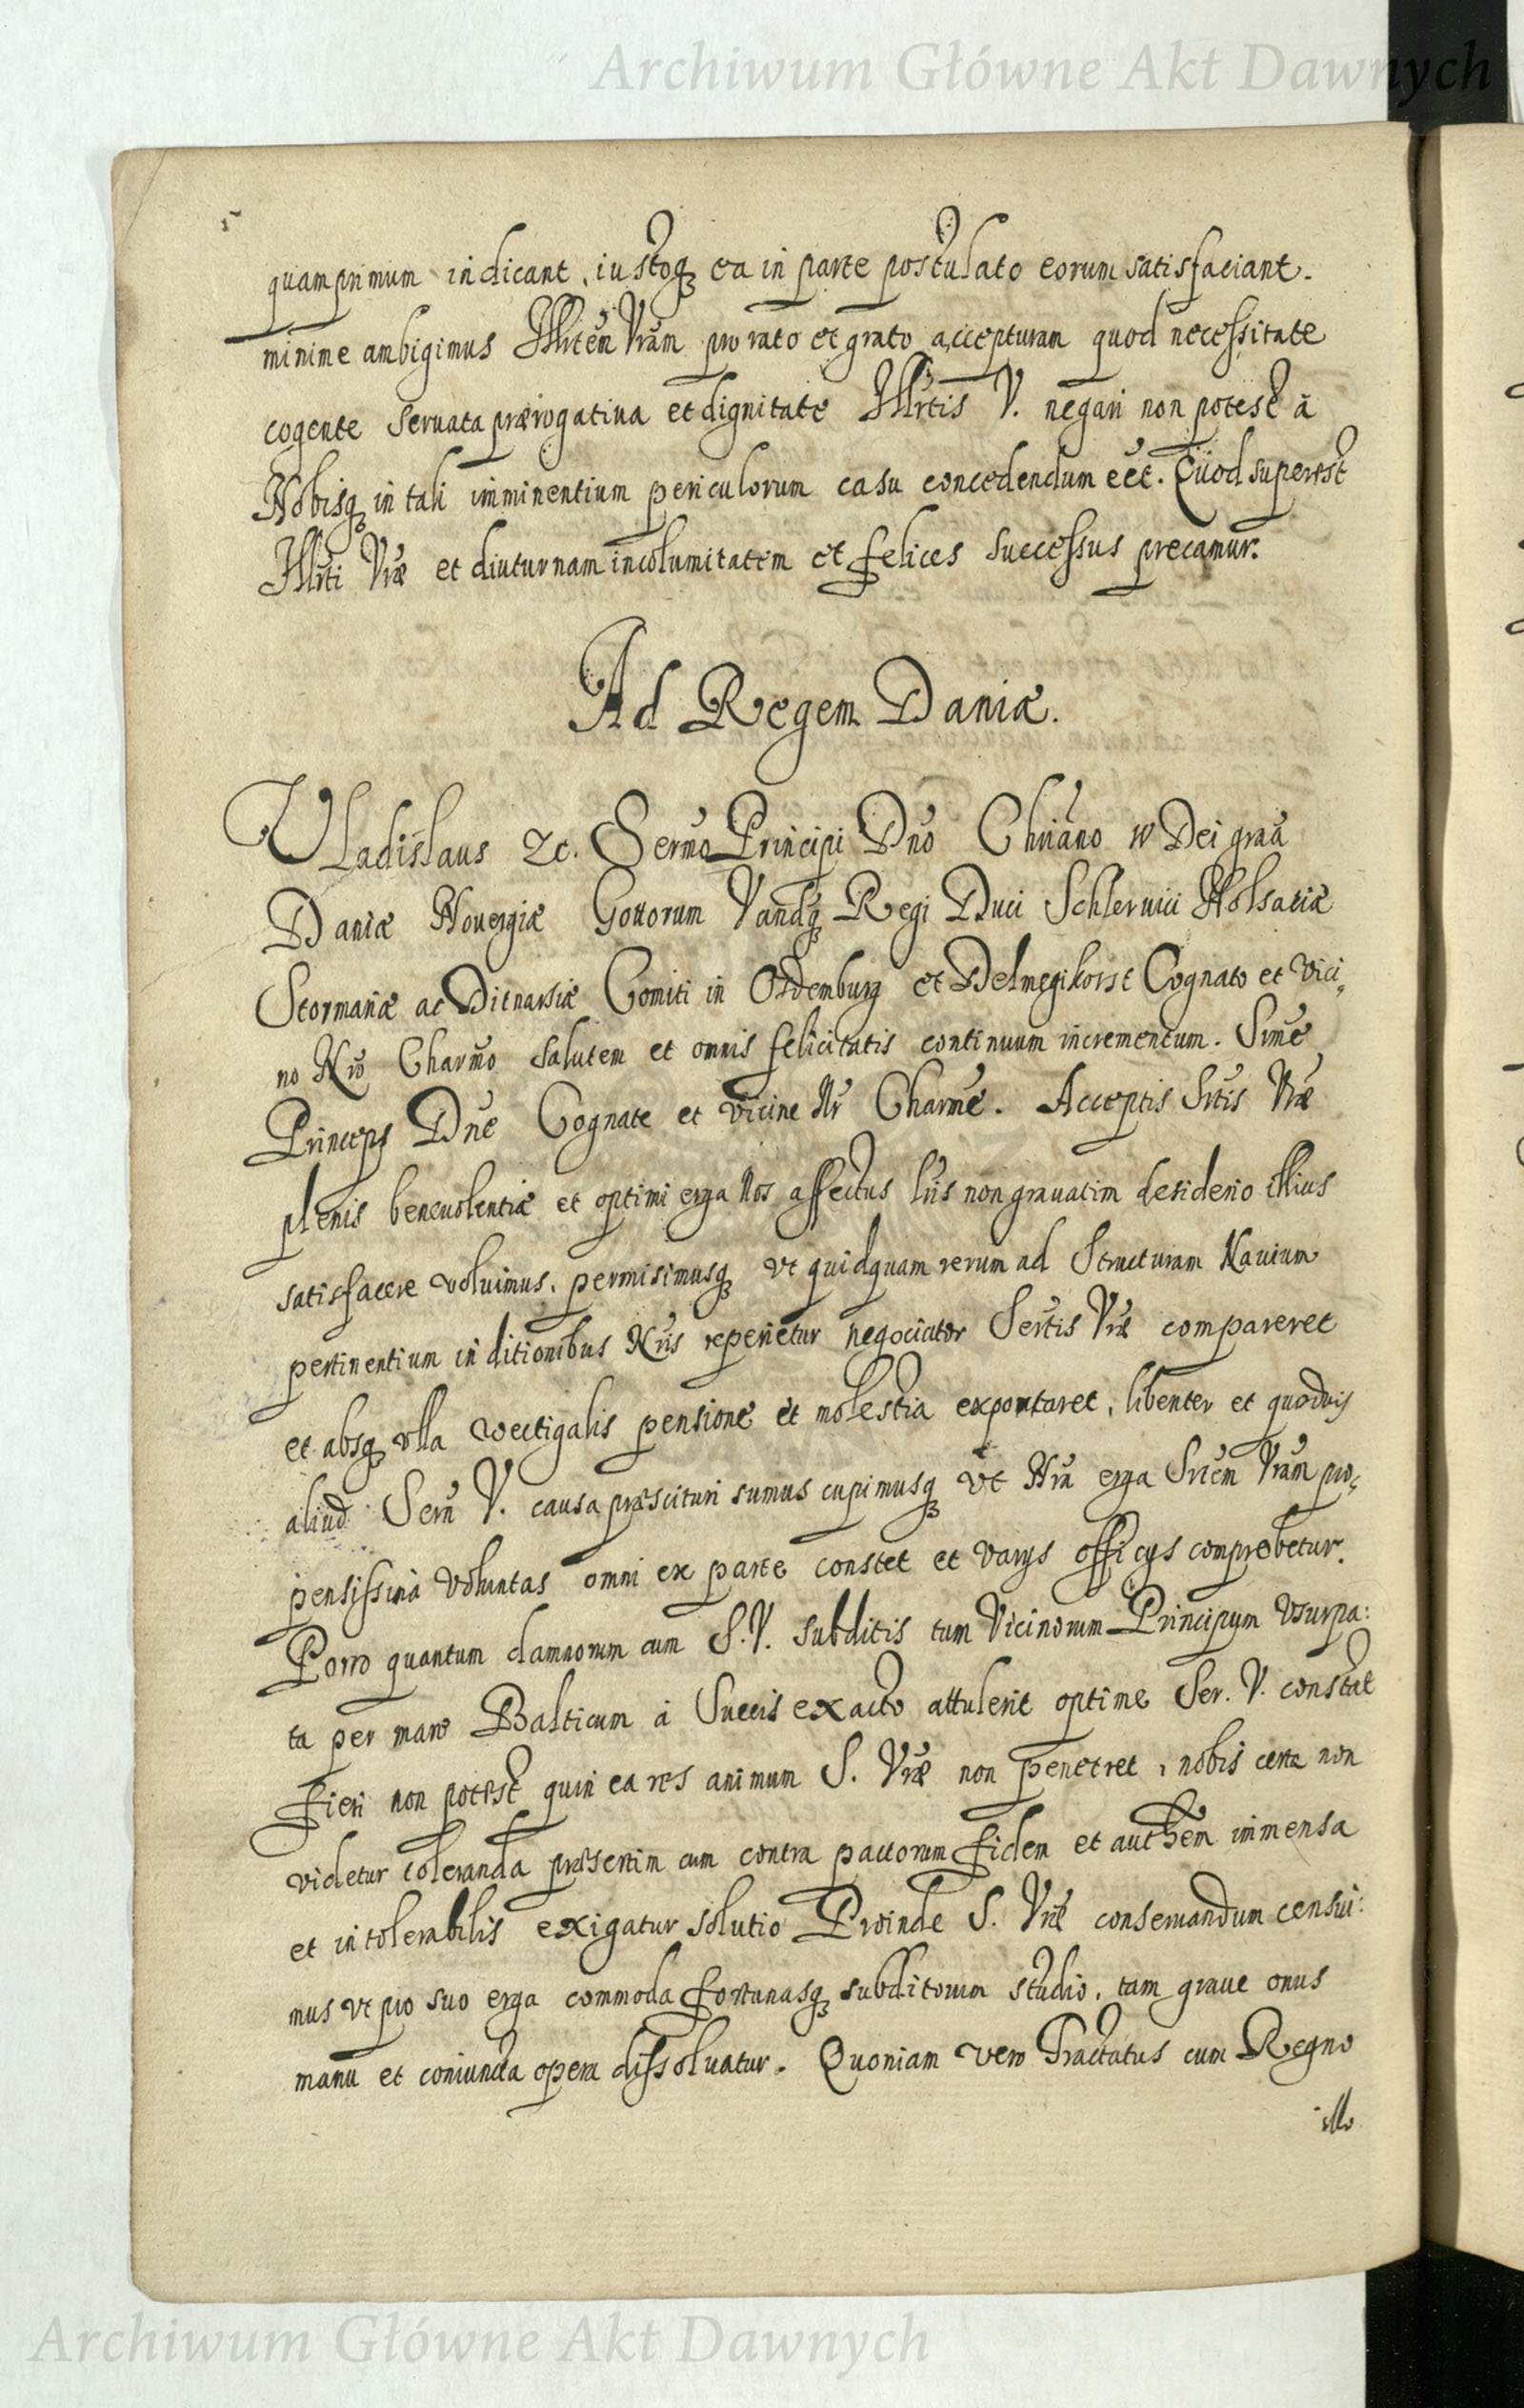 Archiwum Główne Akt Dawnych
quamprimum indicant, iustoq₃ ea in parte postulato eorum satisfaciant.
minime ambigimus Illrtem Vram pro rato et grato accepturam quod necessitate
cogente seruata prærogatiua et dignitate Illrtis V. negari non potest à
Nobisq₃ in tali imminentium periculorum casu concedendum eet. Quod superest
Illrti Vræ et diuturnam incolumitatem et felices successus precamur.
Ad Regem Daniæ.
Vladislaus 2c. Sermo Principi Dno Chriano IV Dei graa
Daniæ Noueigiæ Gottorum Vandq₃ Regi Duci Schlesuici Holsatiæ
Stormariæ ac Ditmarsiæ Comiti in Oldemburg et Delmegihorst Cognato et Vici,
no Nro Charmo salutem et omnis felicitatis continuum incrementum. Srme
Princeps Dne Cognate et vicine Nr Charme. Acceptis Srtis Vræ
plenis beneuolentiæ et optimi erga Nos affectus lris non grauatim desiderio illius
satisfacere voluimus, permisimusq₃ vt quidquam rerum ad Structuram Nauium
pertinentium in ditionibus Nris reperietur negociator Sertis Vræ compareret
et absq₃ vlla vectigalis pensione et molestia exportaret, libenter et quoduis
aliud Sern V. causa præscituri sumus cupimusq₃ vt Nra erga Srtem Vram pro,
pensissima voluntas omni ex parte constet et varijs officijs comprobetur.
Porro quantum damnorum cum S. V. subditis tum Vicinorum Principum vsurpa:
ta per mare Balticum à Suecis exactio attulerit optime Ser. V. constat
fieri non potest quin ea res animum S. Vræ non penetret, nobis certe non
videtur toleranda præsertim cum contra pactorum fidem et authem immensa
et intolerabilis exigatur solutio Proinde S. Vræ conseruandum censui:
mus vt pro suo erga commoda fortunasq₃ subditorum studio, tam graue onus
manu et coniuncta opera dissoluatur. Quoniam vero Tractatus cum Regno
illo
Archiwum Główne Akt Dawnych